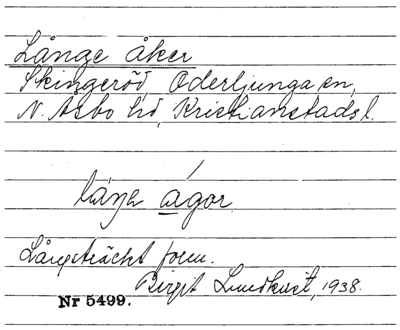 Långe åker
Skingeröd, Oderljunga sn,
N. Åsbo hd, Kristianstads l.
långstsräckt form.
Birgit Lundkvist, 1938.
Nr 5499.